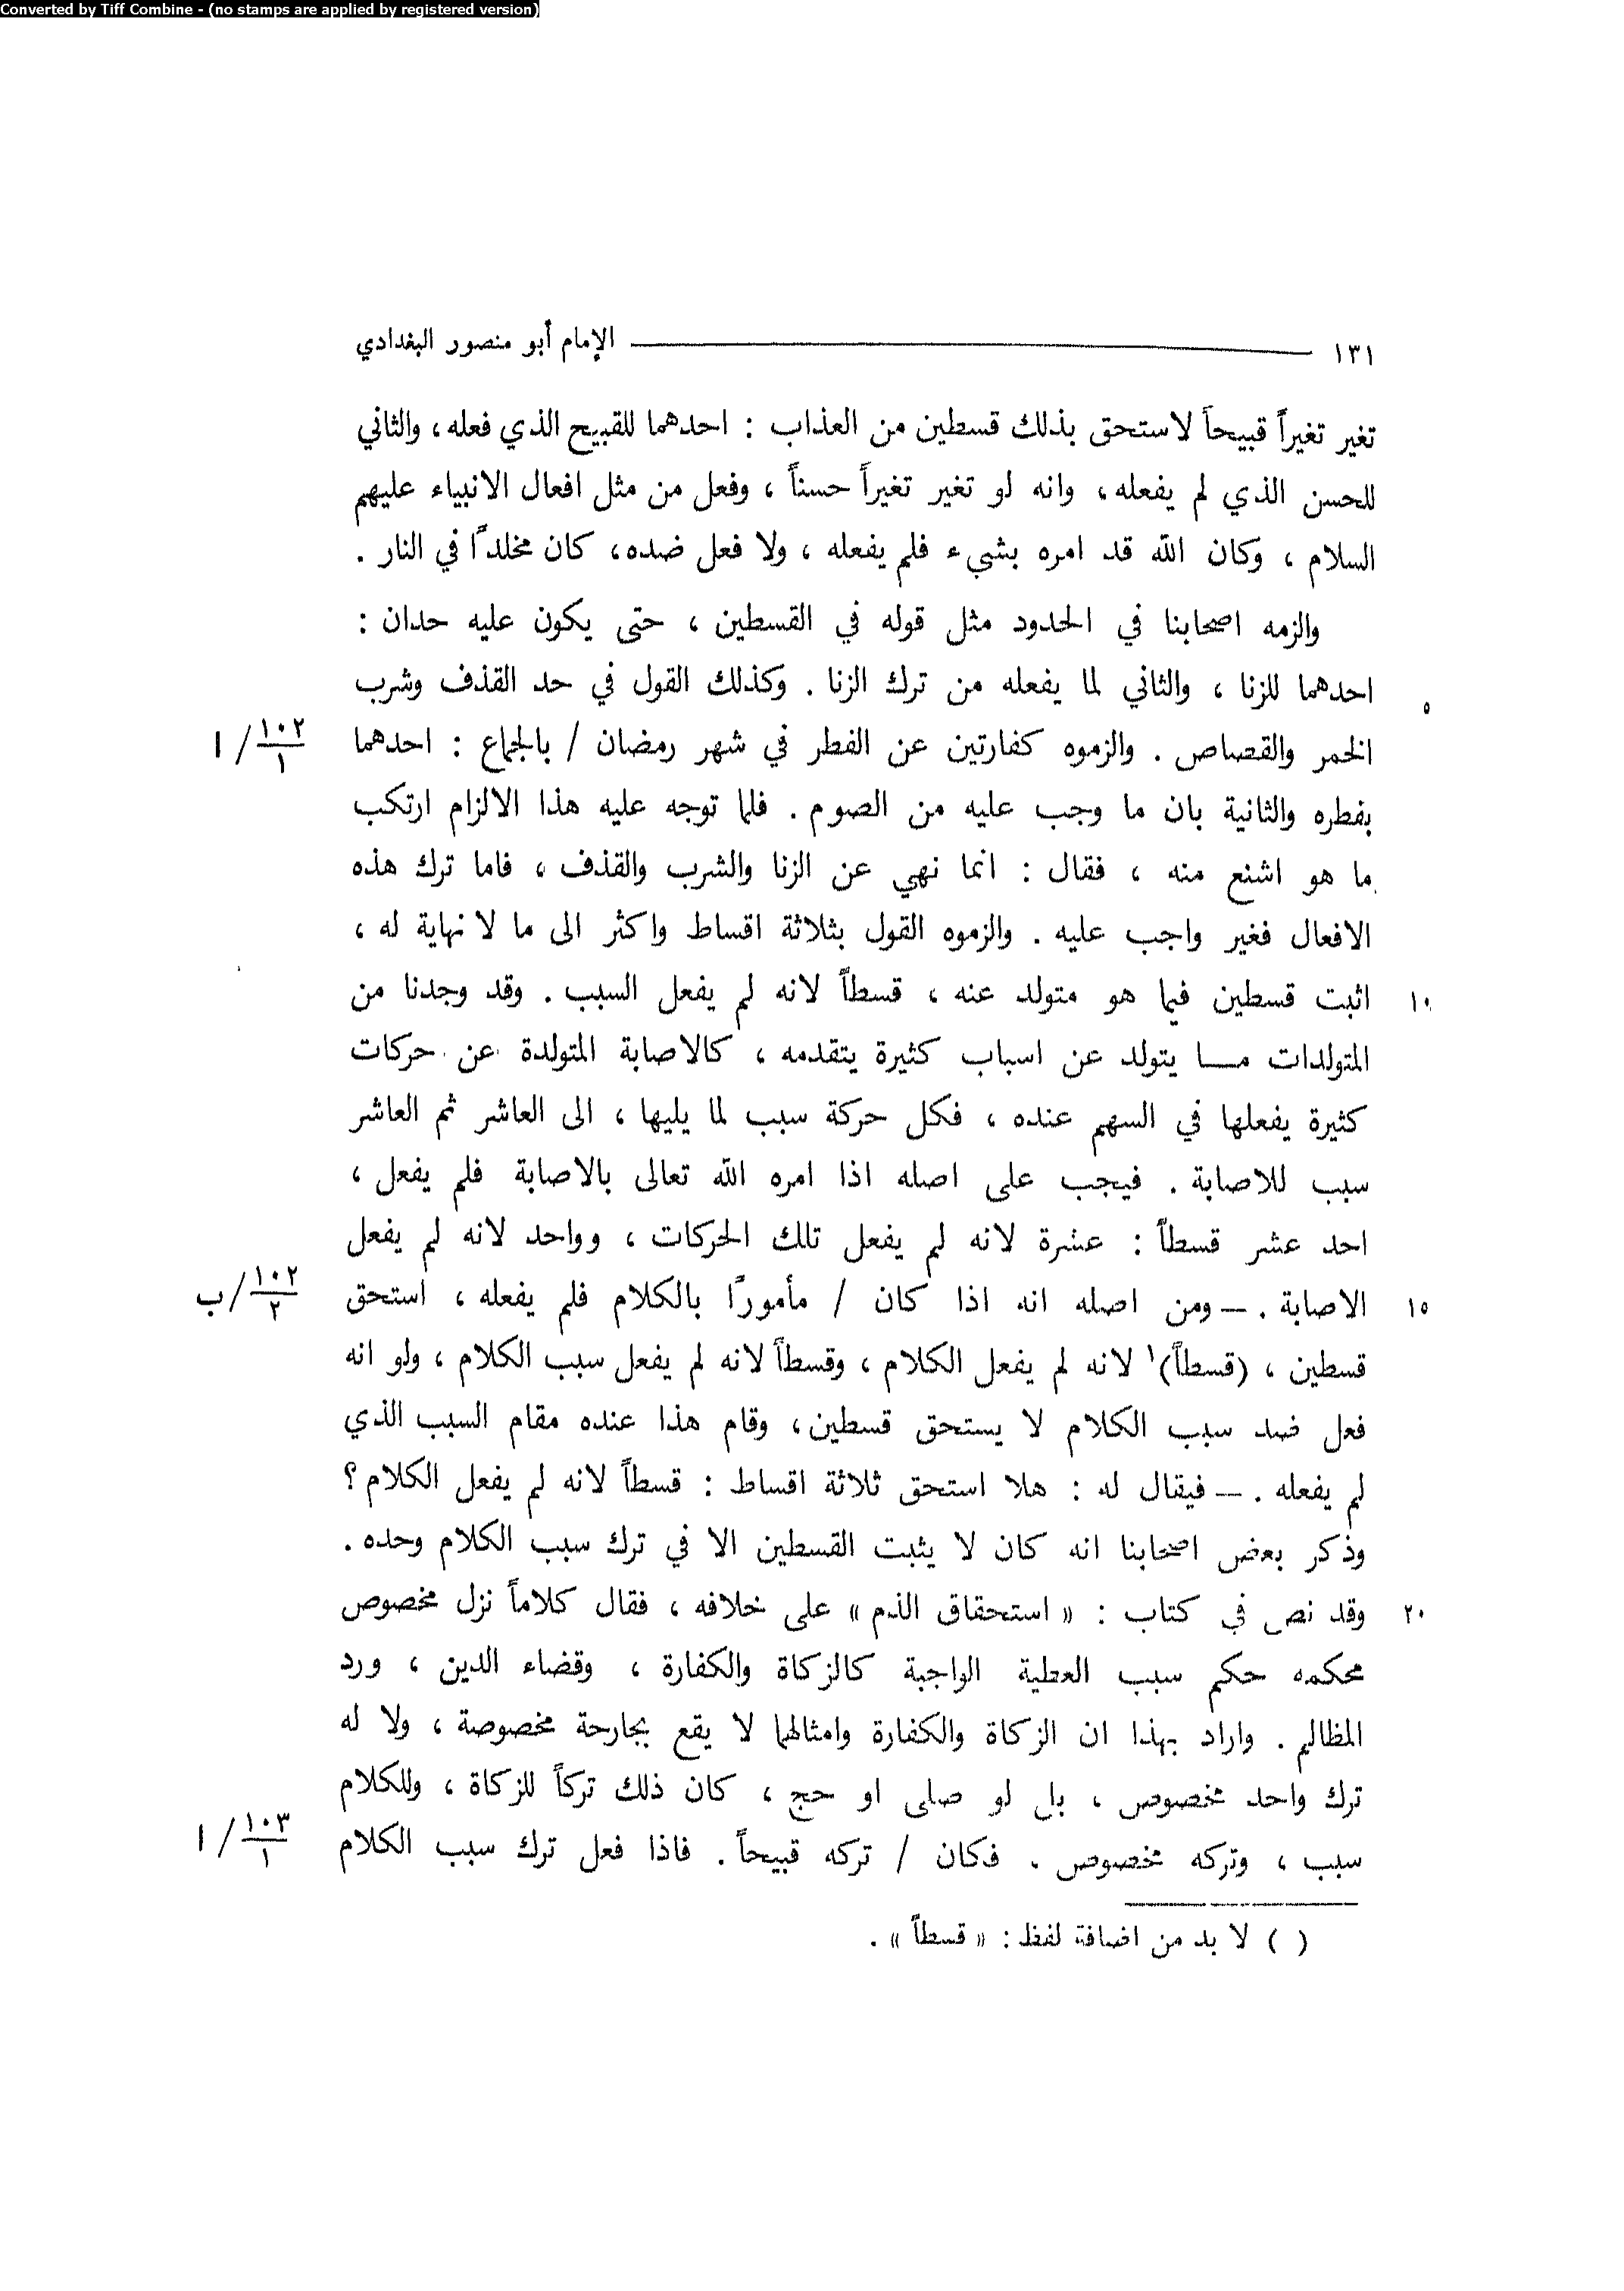 Converted by Tiff Combine - (no stamps are applied by registered version)
١٣١ الإمام أبو منصور البغدادي
تغير تغيراً قبيحاً لاستحق بذلك قسطين من العذاب : احدهما للقبيح الذي فعله ، والثاني
للحسن الذي لم يفعله ، وانه لو تغير تغيراً حسناً ، وفعل من مثل افعال الانبياء عليهم
السلام ، وكان الله قد امره بشيء فلم يفعله ، ولا فعل ضده ، كان مخلداً في النار .
والزمه اصحابنا في الحدود مثل قوله في القسطين ، حتى يكون عليه حدان :
احدهما للزنا ، والثاني لما يفعله من ترك الزنا . وكذلك القول في حد القذف وشرب ٥
الخمر والقصاص . والزموه كفارتين عن الفطر في شهر رمضان / بالجماع : احدهما ١٠٢/١ / ا
بفطره والثانية بان ما وجب عليه من الصوم . فلما توجه عليه هذا الالزام ارتكب
ما هو اشنع منه ، فقال : انما نهي عن الزنا والشرب والقذف ، فاما ترك هذه
الافعال فغير واجب عليه . والزموه القول بثلاثة اقساط واكثر الى ما لا نهاية له ،
اثبت قسطين فيما هو متولد عنه ، قسطاً لانه لم يفعل السبب . وقد وجدنا من ١٠
المتولدات مــا يتولد عن اسباب كثيرة يتقدمه ، كالاصابة المتولدة عن حركات
كثيرة يفعلها في السهم عنده ، فكل حركة سبب لما يليها ، الى العاشر ثم العاشر
سبب للاصابة . فيجب على اصله اذا امره الله تعالى بالاصابة فلم يفعل ،
احد عشر قسطاً : عشرة لانه لم يفعل تلك الحركات ، وواحد لانه لم يفعل
الاصابة . — ومن اصله انه اذا كان / مأموراً بالكلام فلم يفعله ، استحق ١٥ ١٠٢/٢ / ب
قسطين ، (قسطاً)١ لانه لم يفعل الكلام ، وقسطاً لانه لم يفعل سبب الكلام ، ولو انه
فعل ضد سبب الكلام لا يستحق قسطين ، وقام هذا عنده مقام السبب الذي
لم يفعله . — فيقال له : هلا استحق ثلاثة اقساط : قسطاً لانه لم يفعل الكلام ؟
وذكر بعض اصحابنا انه كان لا يثبت القسطين الا في ترك سبب الكلام وحده .
وقد نص في كتاب : « استحقاق الذم » على خلافه ، فقال كلاماً نزل مخصوص ٢٠
محكمه حكم سبب العطية الواجبة كالزكاة والكفارة ، وقضاء الدين ، ورد
المظالم . واراد بهذا ان الزكاة والكفارة وامثالهما لا يقع بجارحة مخصوصة ، ولا له
ترك واحد مخصوص ، بل لو صلى او حج ، كان ذلك تركاً للزكاة ، وللكلام
سبب ، وتركه مخصوص . فكان / تركه قبيحاً . فاذا فعل ترك سبب الكلام ١٠٣/١ / ا
( ) لا بد من اضافة لفظ : « قسطاً » .